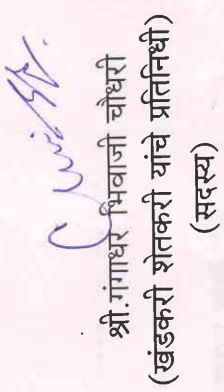 श्री.गंगाधर भिवाजी चौधरी
(खंडकरी शेतकरी यांचे प्रतिनिधी)
(सदस्य)